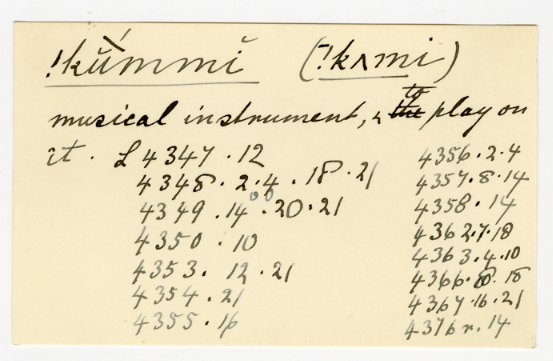 !kŭ́mmĭ (!kʌmi)
musical instrument, to play on
it. L 4347.12
4348.2.4.18.21
4349.14.20.21
4350.10
4353.12.21
4354.21
4355.16
4356.2.4
4357.8.14
4358.14
4362.7.18
4363.4.10
4366.8.18
4367.16.21
4376r.14